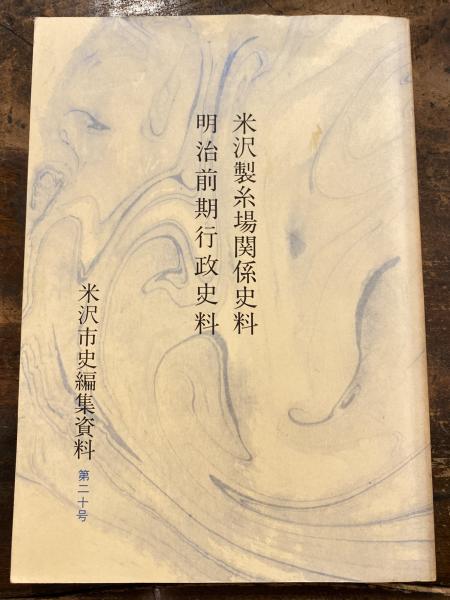 米沢製糸場関係史料
明治前期行政史料
米沢市史編集資料 第二十号